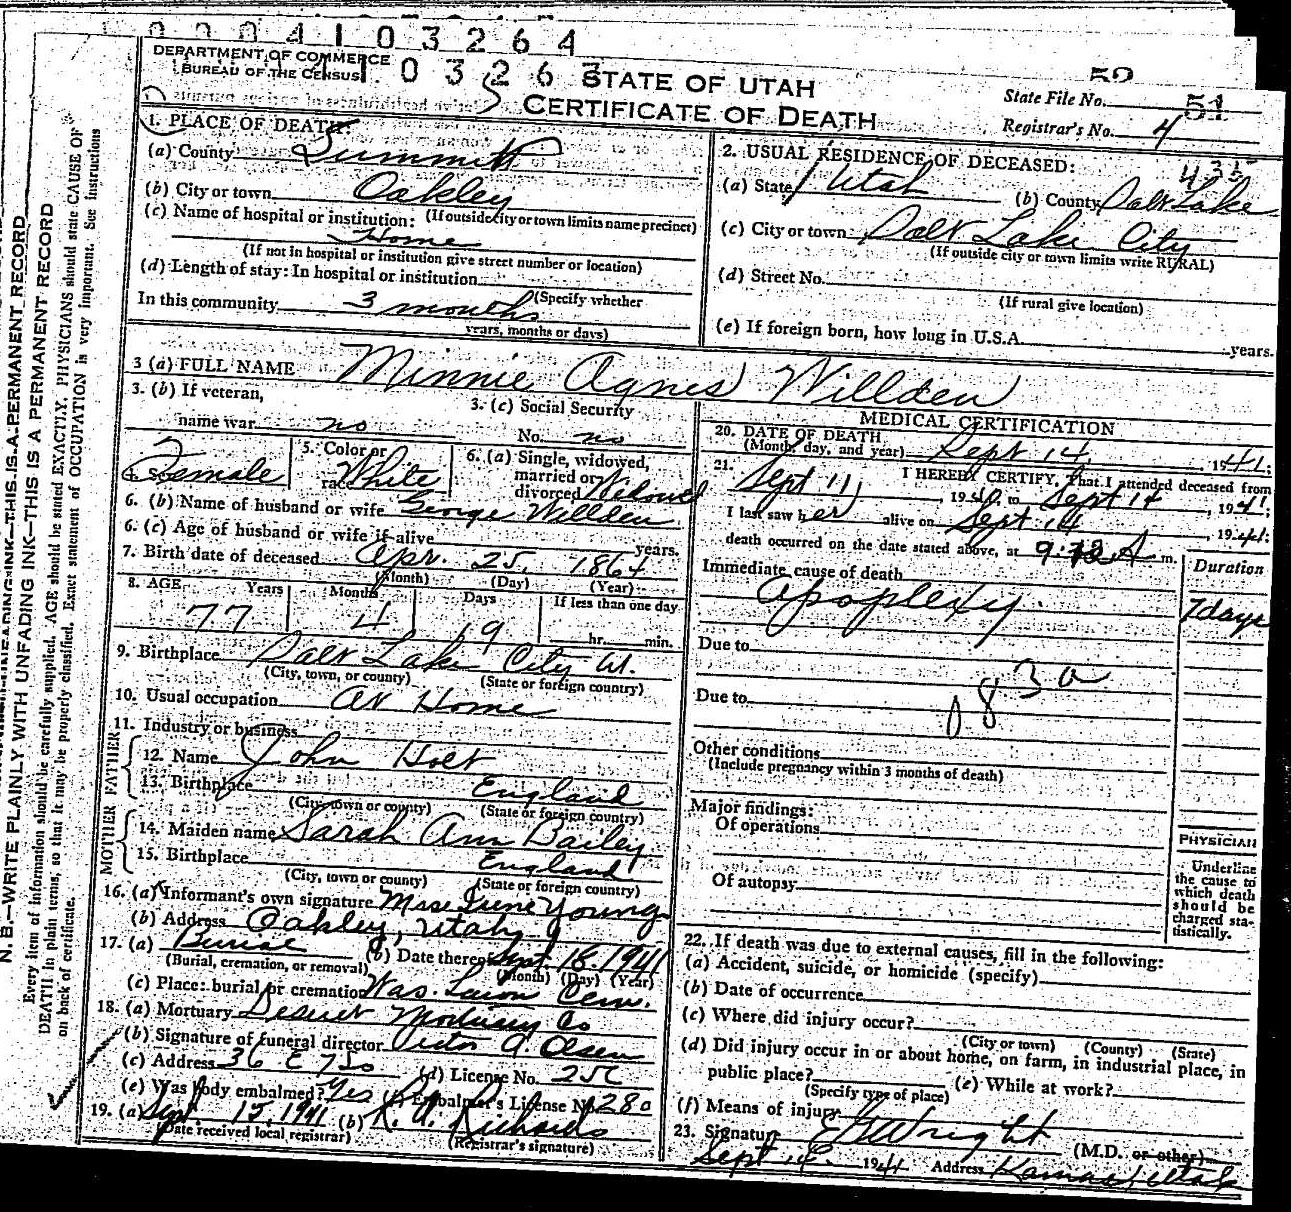 0004103264
DEPARTMENT OF COMMERCE
BUREAU OF THE CENSUS
103263
STATE OF UTAH
CERTIFICATE OF DEATH
52
State File No. 51
Registrar's No. 4
1. PLACE OF DEATH:
(a) County Summitt
(b) City or town Oakley
(If outside city or town limits name precinct)
(c) Name of hospital or institution:
Home
(If not in hospital or institution give street number or location)
(d) Length of stay: In hospital or institution
(Specify whether
In this community 3 months
years, months or days)
2. USUAL RESIDENCE OF DECEASED:
435
(a) State Utah (b) County Salt Lake
(c) City or town Salt Lake City
(If outside city or town limits write RURAL)
(d) Street No.
(If rural give location)
(e) If foreign born, how long in U.S.A. years.
3 (a) FULL NAME Minnie Agnes Willden
3. (b) If veteran,
name war no
3. (c) Social Security
No. no
4. Sex Female
5. Color or
race White
6. (a) Single, widowed,
married or
divorced Widowed
6. (b) Name of husband or wife George Willden
6. (c) Age of husband or wife if alive years.
7. Birth date of deceased Apr. 25, 1864
(Month) (Day) (Year)
8. AGE Years Months Days If less than one day
77 4 19 hr. min.
9. Birthplace Salt Lake City Ut.
(City, town, or county) (State or foreign country)
10. Usual occupation At Home
11. Industry or business
FATHER
12. Name John Holt
13. Birthplace England
(City, town or county) (State or foreign country)
MOTHER
14. Maiden name Sarah Ann Bailey
15. Birthplace England
(City, town or county) (State or foreign country)
16. (a) Informant's own signature Mrs. Irene Young
(b) Address Oakley, Utah
17. (a) Burial (b) Date thereof Sept. 18, 1941
(Burial, cremation, or removal) (Month) (Day) (Year)
(c) Place: burial or cremation Was. Lawn Cem.
18. (a) Mortuary Deseret Mortuary Co
(b) Signature of funeral director Victor A. Olsen
(c) Address 36 E 7 So (d) License No.
(e) Was body embalmed? Yes (f) Embalmer's License No. 280
19. (a) Sept. 15, 1941 (b) R. A. Richards
(Date received local registrar) (Registrar's signature)
MEDICAL CERTIFICATION
20. DATE OF DEATH
(Month, day, and year) Sept 14, 1941;
21. I HEREBY CERTIFY, That I attended deceased from
Sept 11, 1940 to Sept 14, 1941;
I last saw her alive on Sept 14, 1941;
death occurred on the date stated above, at A m.
Immediate cause of death Duration
Apoplexy. 7 days
Due to
083a
Due to
Other conditions
(Include pregnancy within 3 months of death)
Major findings:
Of operations
Of autopsy
PHYSICIAN
Underline
the cause to
which death
should be
charged sta-
tistically.
22. If death was due to external causes, fill in the following:
(a) Accident, suicide, or homicide (specify)
(b) Date of occurrence
(c) Where did injury occur?
(City or town) (County) (State)
(d) Did injury occur in or about home, on farm, in industrial place, in
public place? (e) While at work?
(Specify type of place)
(f) Means of injury
23. Signature Wright (M.D. or other)
Sept 14 1941 Address Kamas, Utah
N. B.—WRITE PLAINLY WITH UNFADING INK—THIS IS A PERMANENT RECORD
Every item of information should be carefully supplied. AGE should be stated EXACTLY, PHYSICIANS should state CAUSE OF
DEATH in plain terms, so that it may be properly classified. Exact statement of OCCUPATION is very important. See instructions
on back of certificate.